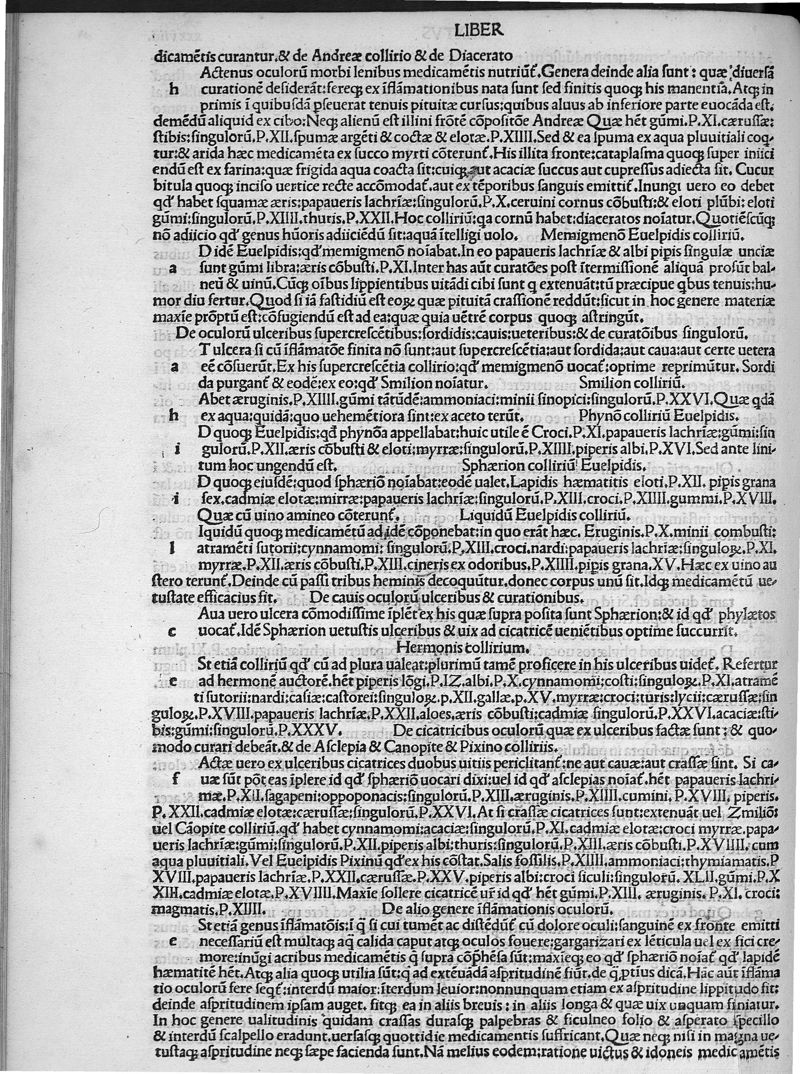 LIBER
dicamẽtis curantur.& de Andreæ collirio & de Diacerato
Actenus oculorũ morbi lenibus medicamẽtis nutriũt᷑.Genera deinde alia sunt: quæ diuersã
h curationẽ desiderãt:fereq; ex ĩflãmationibus nata sunt sed finitis quoq; his manentia.Atq; in
primis ĩ quibusdã ꝑseuerat tenuis pituitæ cursus:quibus aluus ab inferiore parte euocãda est.
demẽdũ aliquid ex cibo:Neq; alienũ est illini frõtẽ cõpositõe Andreæ Quæ hẽt gũmi.P.XI.cærussæ:
stibis:singulorũ.P.XII.spumæ argẽti & coctæ & elotæ.P.XIIII.Sed & ea spuma ex aqua pluuitiali coq̃
tur:& arida hæc medicamẽta ex succo myrti cõterunt᷑.His illita fronte:cataplasma quoq; super iniici
endũ est ex farina:quæ frigida aqua coacta sit:cuiq; aut acaciæ succus aut cupressus adiecta sit. Cucur
bitula quoq; inciso uertice recte accõmodat᷑.aut ex tẽporibus sanguis emittit᷑.Inungi uero eo debet
qd᷑ habet squamæ æris:papaueris lachriæ:singulorũ.P.X.ceruini cornus cõbusti:& eloti plũbi: eloti
gũmi:singulorũ.P.XIIII.thuris.P.XXII.Hoc colliriũ:q̃a cornũ habet:diaceratos noĩatur.Quotiẽscũq;
nõ adiicio qd᷑ genus hũoris adiiciẽdũ sit:aquã ĩtelligi uolo. Memigmenõ Euelpidis colliriũ.
D idẽ Euelpidis:qd᷑ memigmenõ noĩabat.In eo papaueris lachriæ & albi pipis singulæ unciæ
a sunt gũmi libra:æris cõbusti.P.XI.Inter has aũt curatões post ĩtermissionẽ aliquã prosũt bal-
neũ & uinũ.Cũq; oĩbus lippientibus uitãdi cibi sunt q extenuãt:tũ præcipue qbus tenuis:hu-
mor diu fertur.Quod si iã fastidiũ est eoꝝ quæ pituitã crassionẽ reddũt:sicut in hoc genere materiæ
maxĩe prõptũ est:cõfugiendũ est ad ea:quæ quia uẽtrẽ corpus quoq; astringũt.
De oculorũ ulceribus supercrescẽtibus:sordidis:cauis:ueteribus:& de curatõibus singulorũ.
T ulcera si cũ ĩflãmatõe finita nõ sunt:aut supercrescẽtia:aut sordida:aut caua:aut certe uetera
a eẽ cõsuerũt.Ex his supercrescẽtia collirio:qd᷑ memigmenõ uocat᷑:optime reprimũtur. Sordi
da purgant᷑ & eodẽ:ex eo:qd᷑ Smilion noĩatur. Smilion colliriũ.
Abet æruginis.P.XIIII.gũmi tãtũdẽ:ammoniaci:minii sinopici:singulorũ.P.XXVI.Quæ qdã
h ex aqua:quidã:quo uehemẽtiora sint:ex aceto terũt. Phynõ colliriũ Euelpidis.
D quoq; Euelpidis:qd᷑ phynõa appellabat:huic utile ẽ Croci.P.XI.papaueris lachriæ:gũmi:sin
i gulorũ.P.XII.æris cõbusti & eloti:myrræ:singulorũ.P.XIIII.piperis albi.P.XVI.Sed ante lini-
tum hoc ungendũ est. Sphærion colliriũ Euelpidis.
D quoq; eiusdẽ:quod sphæriõ noĩabat:eodẽ ualet.Lapidis hæmatitis eloti.P.XII. pipis grana
i sex.cadmiæ elotæ:mirræ:papaueris lachriæ:singulorũ.P.XIII.croci.P.XIIII.gummi.P.XVIII.
Quæ cũ uino amineo cõterunt᷑. Liquidũ Euelpidis colliriũ.
Iquidũ quoq; medicamẽtũ ad idẽ cõponebat:in quo erãt hæc. Eruginis.P.X.minii combusti:
l atramẽti sutorii:cynnamomi: singulorũ.P.XIII.croci.nardi:papaueris lachriæ:singuloꝝ.P.XI.
myrræ.P.XII.æris cõbusti.P.XIII.cineris ex odoribus.P.XIIII.pipis grana.XV.Hæc ex uino au
stero terunt᷑.Deinde cũ passi tribus heminis decoquũtur.donec corpus unũ sit.Idq; medicamẽtũ ue-
tustate efficacius fit. De cauis oculorũ ulceribus & curationibus.
Aua uero ulcera cõmodissime ĩplẽt ex his quæ supra posita sunt Sphærion:& id qd᷑ phylætos
c uocat᷑.Idẽ Sphærion uetustis ulceribus & uix ad cicatricẽ ueniẽtibus optime succurrit.
Hermonis collirium.
St etiã colliriũ qd᷑ cũ ad plura ualeat:plurimũ tamẽ proficere in his ulceribus uidet᷑. Refertur
e ad hermonẽ auctorẽ.hẽt piperis lõgi.P.IZ.albi.P.X.cynnamomi:costi:singuloꝝ.P.XI.atramẽ
ti sutorii:nardi:casiæ:castorei:singuloꝝ.p.XII.gallæ.p.XV.myrræ:croci:turis:lycii:cærussæ:sin
guloꝝ.P.XVIII.papaueris lachriæ.P.XXII.aloes.æris cõbusti:cadmiæ singulorũ.P.XXVI.acaciæ:sti-
bis:gũmi:singulorũ.P.XXXV. De cicatricibus oculorũ quæ ex ulceribus factæ sunt: & quo-
modo curari debeãt.& de Asclepia & Canopite & Pixino colliriis.
Actæ uero ex ulceribus cicatrices duobus uitiis periclitant᷑:ne aut cauæ:aut crassæ sint. Si ca-
f uæ sũt põt eas ĩplere id qd᷑ sphæriõ uocari dixi:uel id qd᷑ asclepias noĩat᷑.hẽt papaueris lachri-
mæ.P.XII.sagapeni:oppoponacis:singulorũ.P.XIII.æruginis.P.XIIII.cumini. P.XVIII. piperis.
P.XXII.cadmiæ elotæ:cærussæ:singulorũ.P.XXVI.At si crassæ cicatrices sunt:extenuãt uel Zmilion:
uel Cãopite colliriũ.qd᷑ habet cynnamomi:acaciæ:singulorũ.P.XI.cadmiæ elotæ:croci myrræ.papa-
ueris lachriæ:gũmi:singulorũ.P.XII.piperis albi:thuris:singulorũ.P.XIII.æris cõbusti.P.XVIIII.cum
aqua pluuitiali.Vel Euelpidis Pixinũ qd᷑ ex his cõstat.Salis fossilis.P.XIIII.ammoniaci:thymiamatis.P
XVIII.papaueris lachriæ.P.XXII.cærussæ.P.XXV.piperis albi:croci siculi:singulorũ.XLII.gũmi.P.X
XIII.cadmiæ elotæ.P.XVIIII.Maxĩe sollere cicatricẽ ur᷑ id qd᷑ hẽt gũmi.P.XIII. æruginis.P.XI.croci:
magmatis.P.XIIII. De alio genere ĩflãmationis oculorũ.
St etiã genus ĩflãmatõis:ĩ q̃ si cui tumẽt ac distẽdũt᷑ cũ dolore oculi:sanguinẽ ex fronte emitti
e necessariũ est multaq; aq̃ calida caput atq; oculos fouere:gargarizari ex lẽticula uel ex fici cre-
more:inũgi acribus medicamẽtis q̃ supra cõp̃hẽsa sũt:maxĩeq; eo qd᷑ sphæriõ noĩat᷑ qd᷑ lapidẽ
hæmatitẽ hẽt.Atq; alia quoq; utilia sũt:q̃ ad extẽuãdã aspritudinẽ fiũt.de q̃ ꝓtius dicã.Hãc aũt ĩflãma
tio oculorũ fere seqt᷑:interdũ maior:ĩterdum leuior:nonnunquam etiam ex aspritudine lippitudo fit:
deinde aspritudinem ipsam auget. fitq; ea in aliis breuis: in aliis longa & quæ uix unquam finiatur.
In hoc genere ualitudinis quidam crassas durasq; palpebras & ficulneo folio & asperato specillo
& interdũ scalpello eradunt.uersasq; quottidie medicamentis suffricant.Quæ neq; nisi in magna ue-
tustaq; aspritudine neq; sæpe facienda sunt.Nã melius eodem:ratione uictus & idoneis medicamẽtis